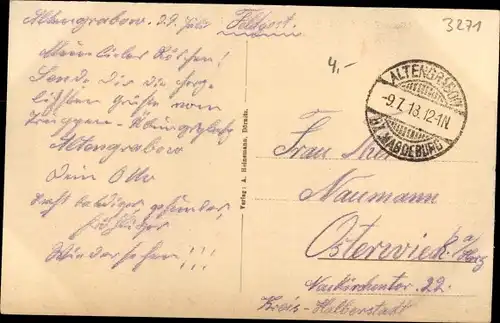 Altengrabow, d. 9. Juli
Feldpost.
Mein liebes Röschen!
Sende Dir die herz-
lichsten Grüße vom
Truppen-Übungsplatz
Altengrabow
Dein Otto
Recht baldiges gesundes,
fröhliches
Wiedersehen!!!
Verlag: A. Heinemann, Dörnitz.
3271
4,-
ALTENGRABOW
-9.7.18.12-1N.
BZ. MAGDEBURG
Frau
Naumann
Osterwieck a/Harz
Neukirchentor. 22.
Kreis-Halberstadt